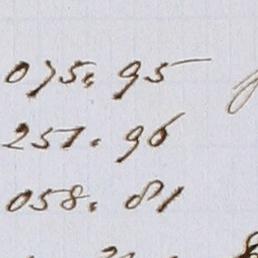 075. 95
251. 96
058. 81